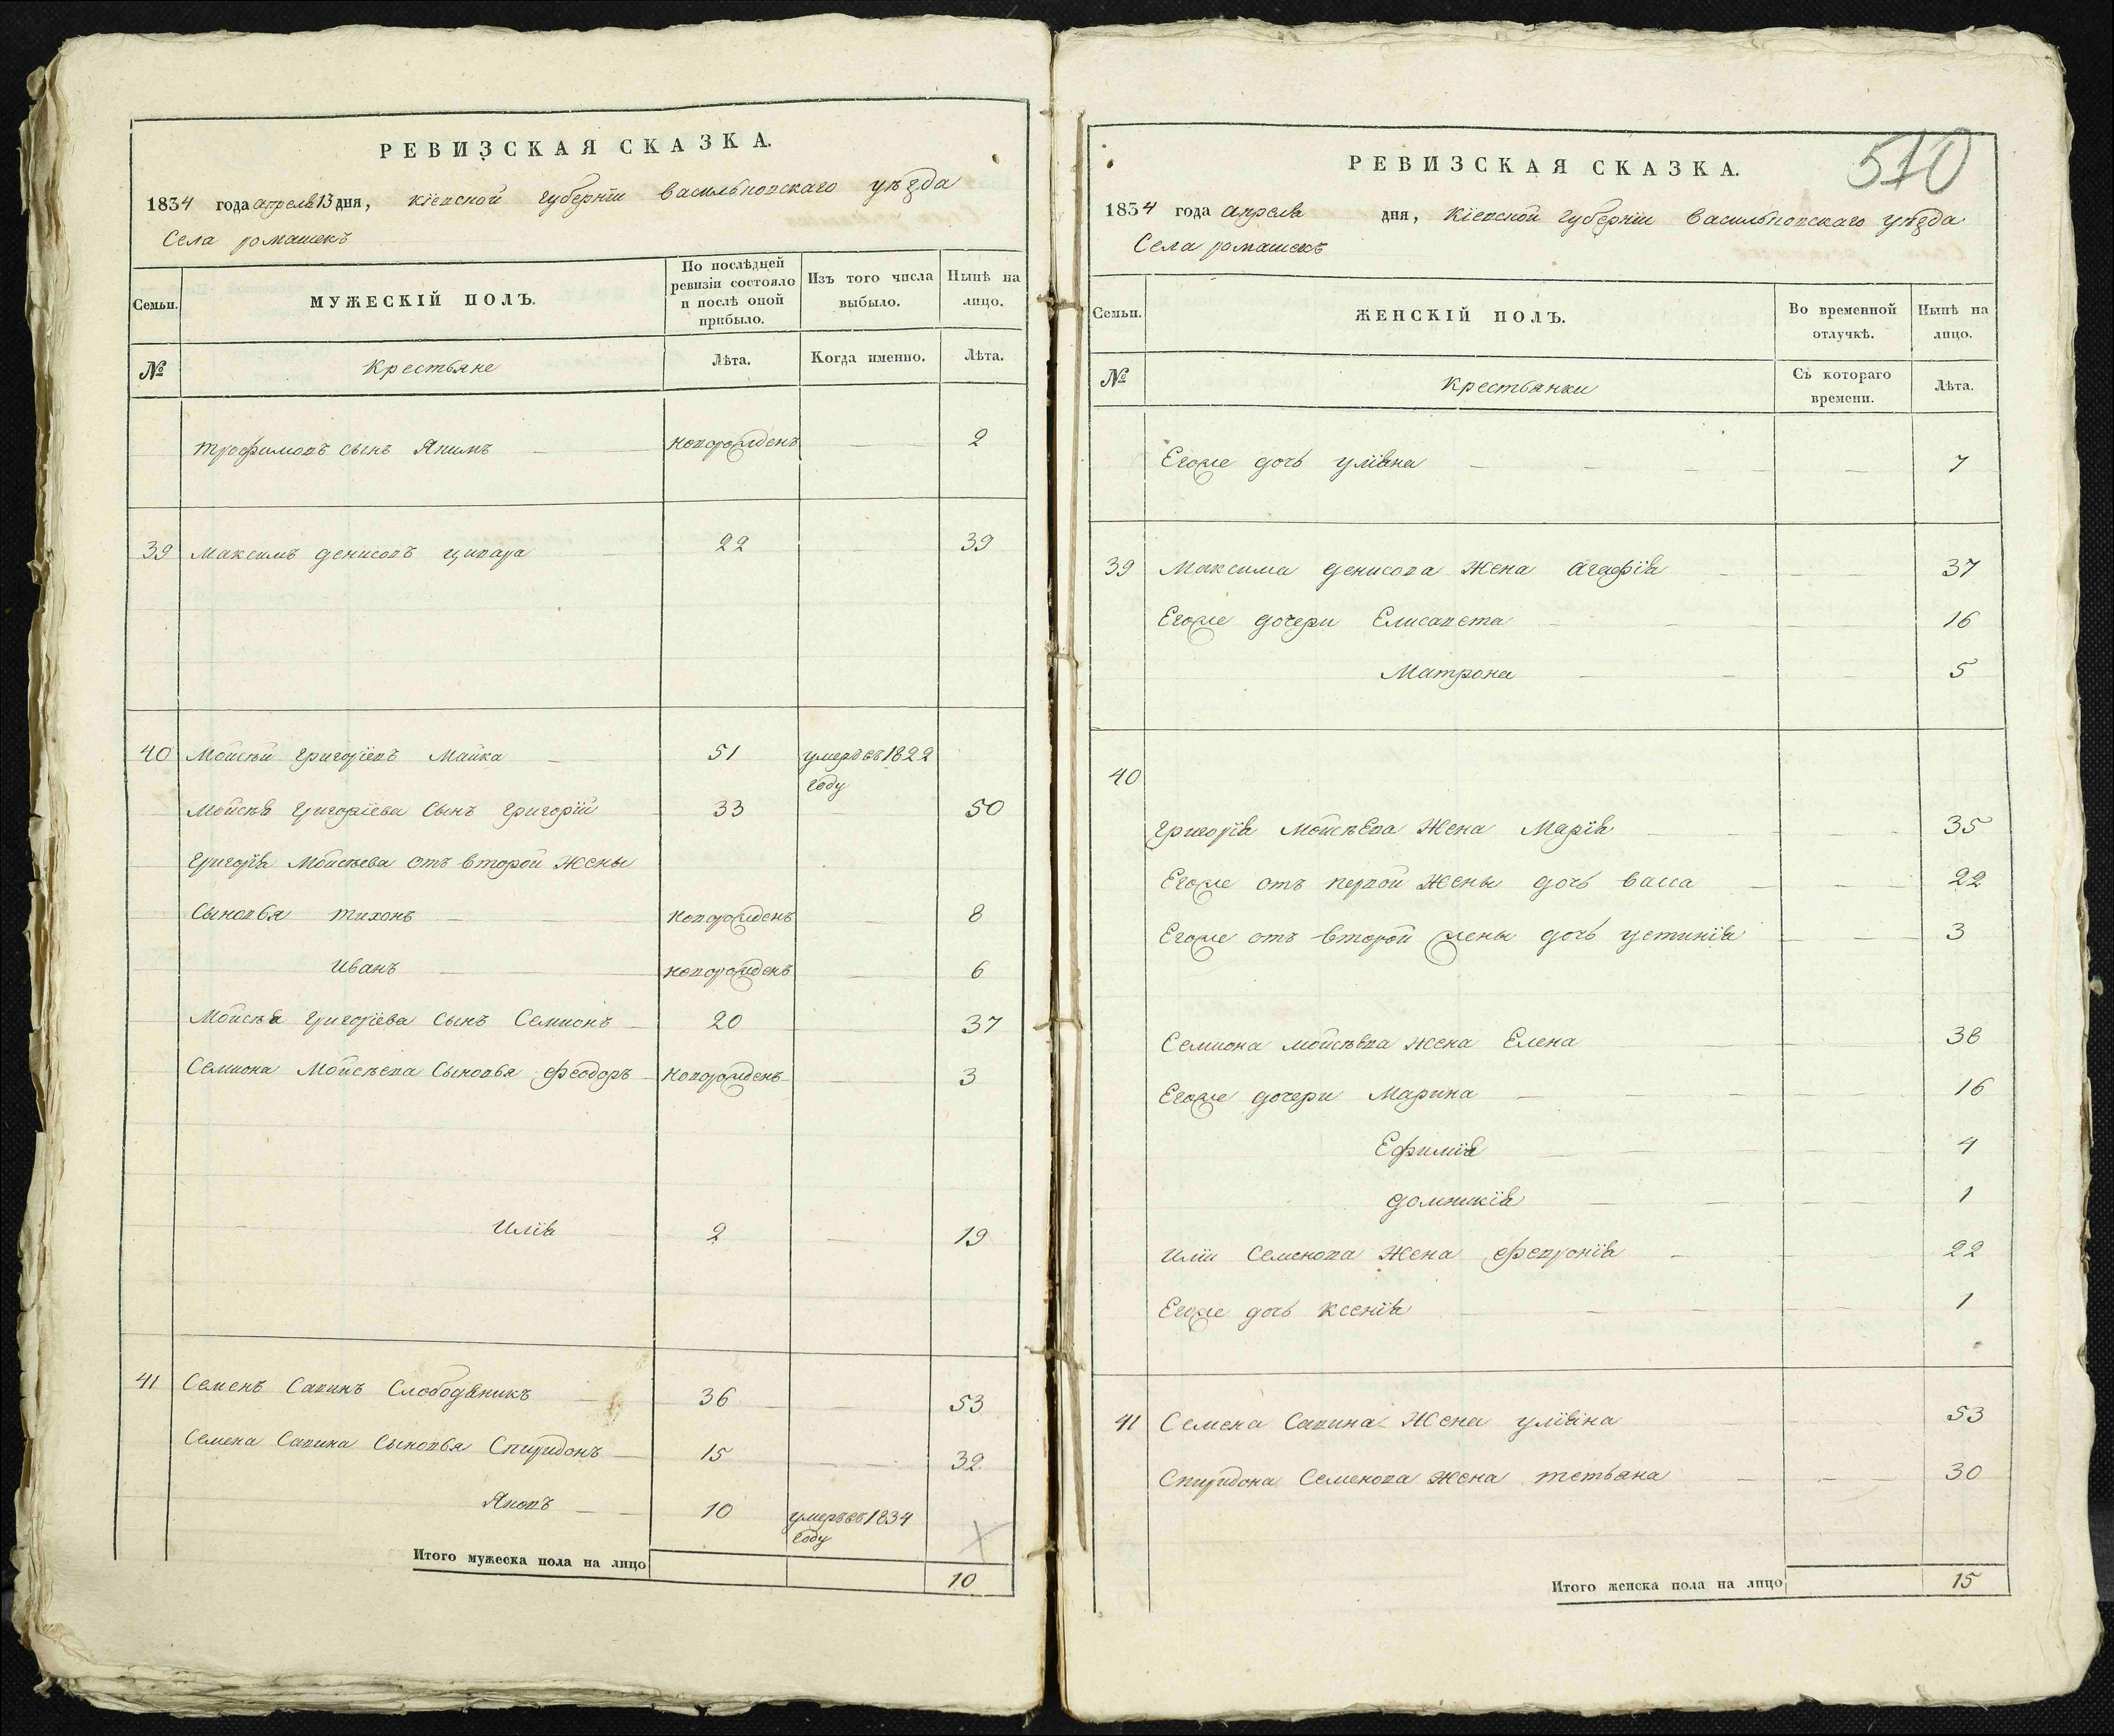 РЕВИЗСКАЯ СКАЗКА.
1834 года апреля 13 дня, Кіевской губерніи Васильковскаго уѣзда
Села ромашекъ
Семьи. МУЖЕСКІЙ ПОЛЪ. По послѣдней ревизіи состояло и послѣ оной прибыло. Изъ того числа выбыло. Нынѣ на лицо.
№ Крестьяне Лѣта. Когда именно. Лѣта.
трофимовъ сынъ Якимъ — новорожденъ — 2
39 Максимъ денисовъ ципара — 22 39
40 Мойсѣй григоріевъ Майка — 51 умеръ въ 1822 году
Мойсѣя григоріева Сынъ григорій 33 — 50
Григорія Мойсѣева отъ второй жены
Сыновья тихонъ — новорожденъ — 8
Иванъ — новорожденъ — 6
Мойсѣя григоріева Сынъ Семионъ — 20 37
Семиона Мойсѣева Сыновья Феодоръ — новорожденъ — 3
Илія — 2 — 19
41 Семенъ Савинъ Слободяникъ — 36 — 53
Семена Савина Сыновья Спиридонъ — 15 — 32
Яковъ — 10 умеръ въ 1834 году
Итого мужеска пола на лицо 10
510
РЕВИЗСКАЯ СКАЗКА.
1834 года апреля дня, Кіевской губерніи Васильковскаго уѣзда
Села ромашекъ
Семьи. ЖЕНСКІЙ ПОЛЪ. Во временной отлучкѣ. Нынѣ на лицо.
№ Крестьянки Съ котораго времени. Лѣта.
Егоже дочь уліяна — 7
39 Максима денисова жена агафія — 37
Егоже дочери Елисавета — 16
Матрона — 5
40
григорія Мойсѣева жена Марія — 35
Егоже отъ первой жены дочь васса — 22
Егоже отъ второй жены дочь устинія — 3
Семиона мойсѣева жена Елена — 38
Егоже дочери Марина — 16
Ефимія — 4
домникія — 1
Иліи Семенова жена Февронія — 22
Егоже дочь ксенія — 1
41 Семена Савина жена уліяна — 53
Спиридона Семенова жена тетьяна — 30
Итого женска пола на лицо 15